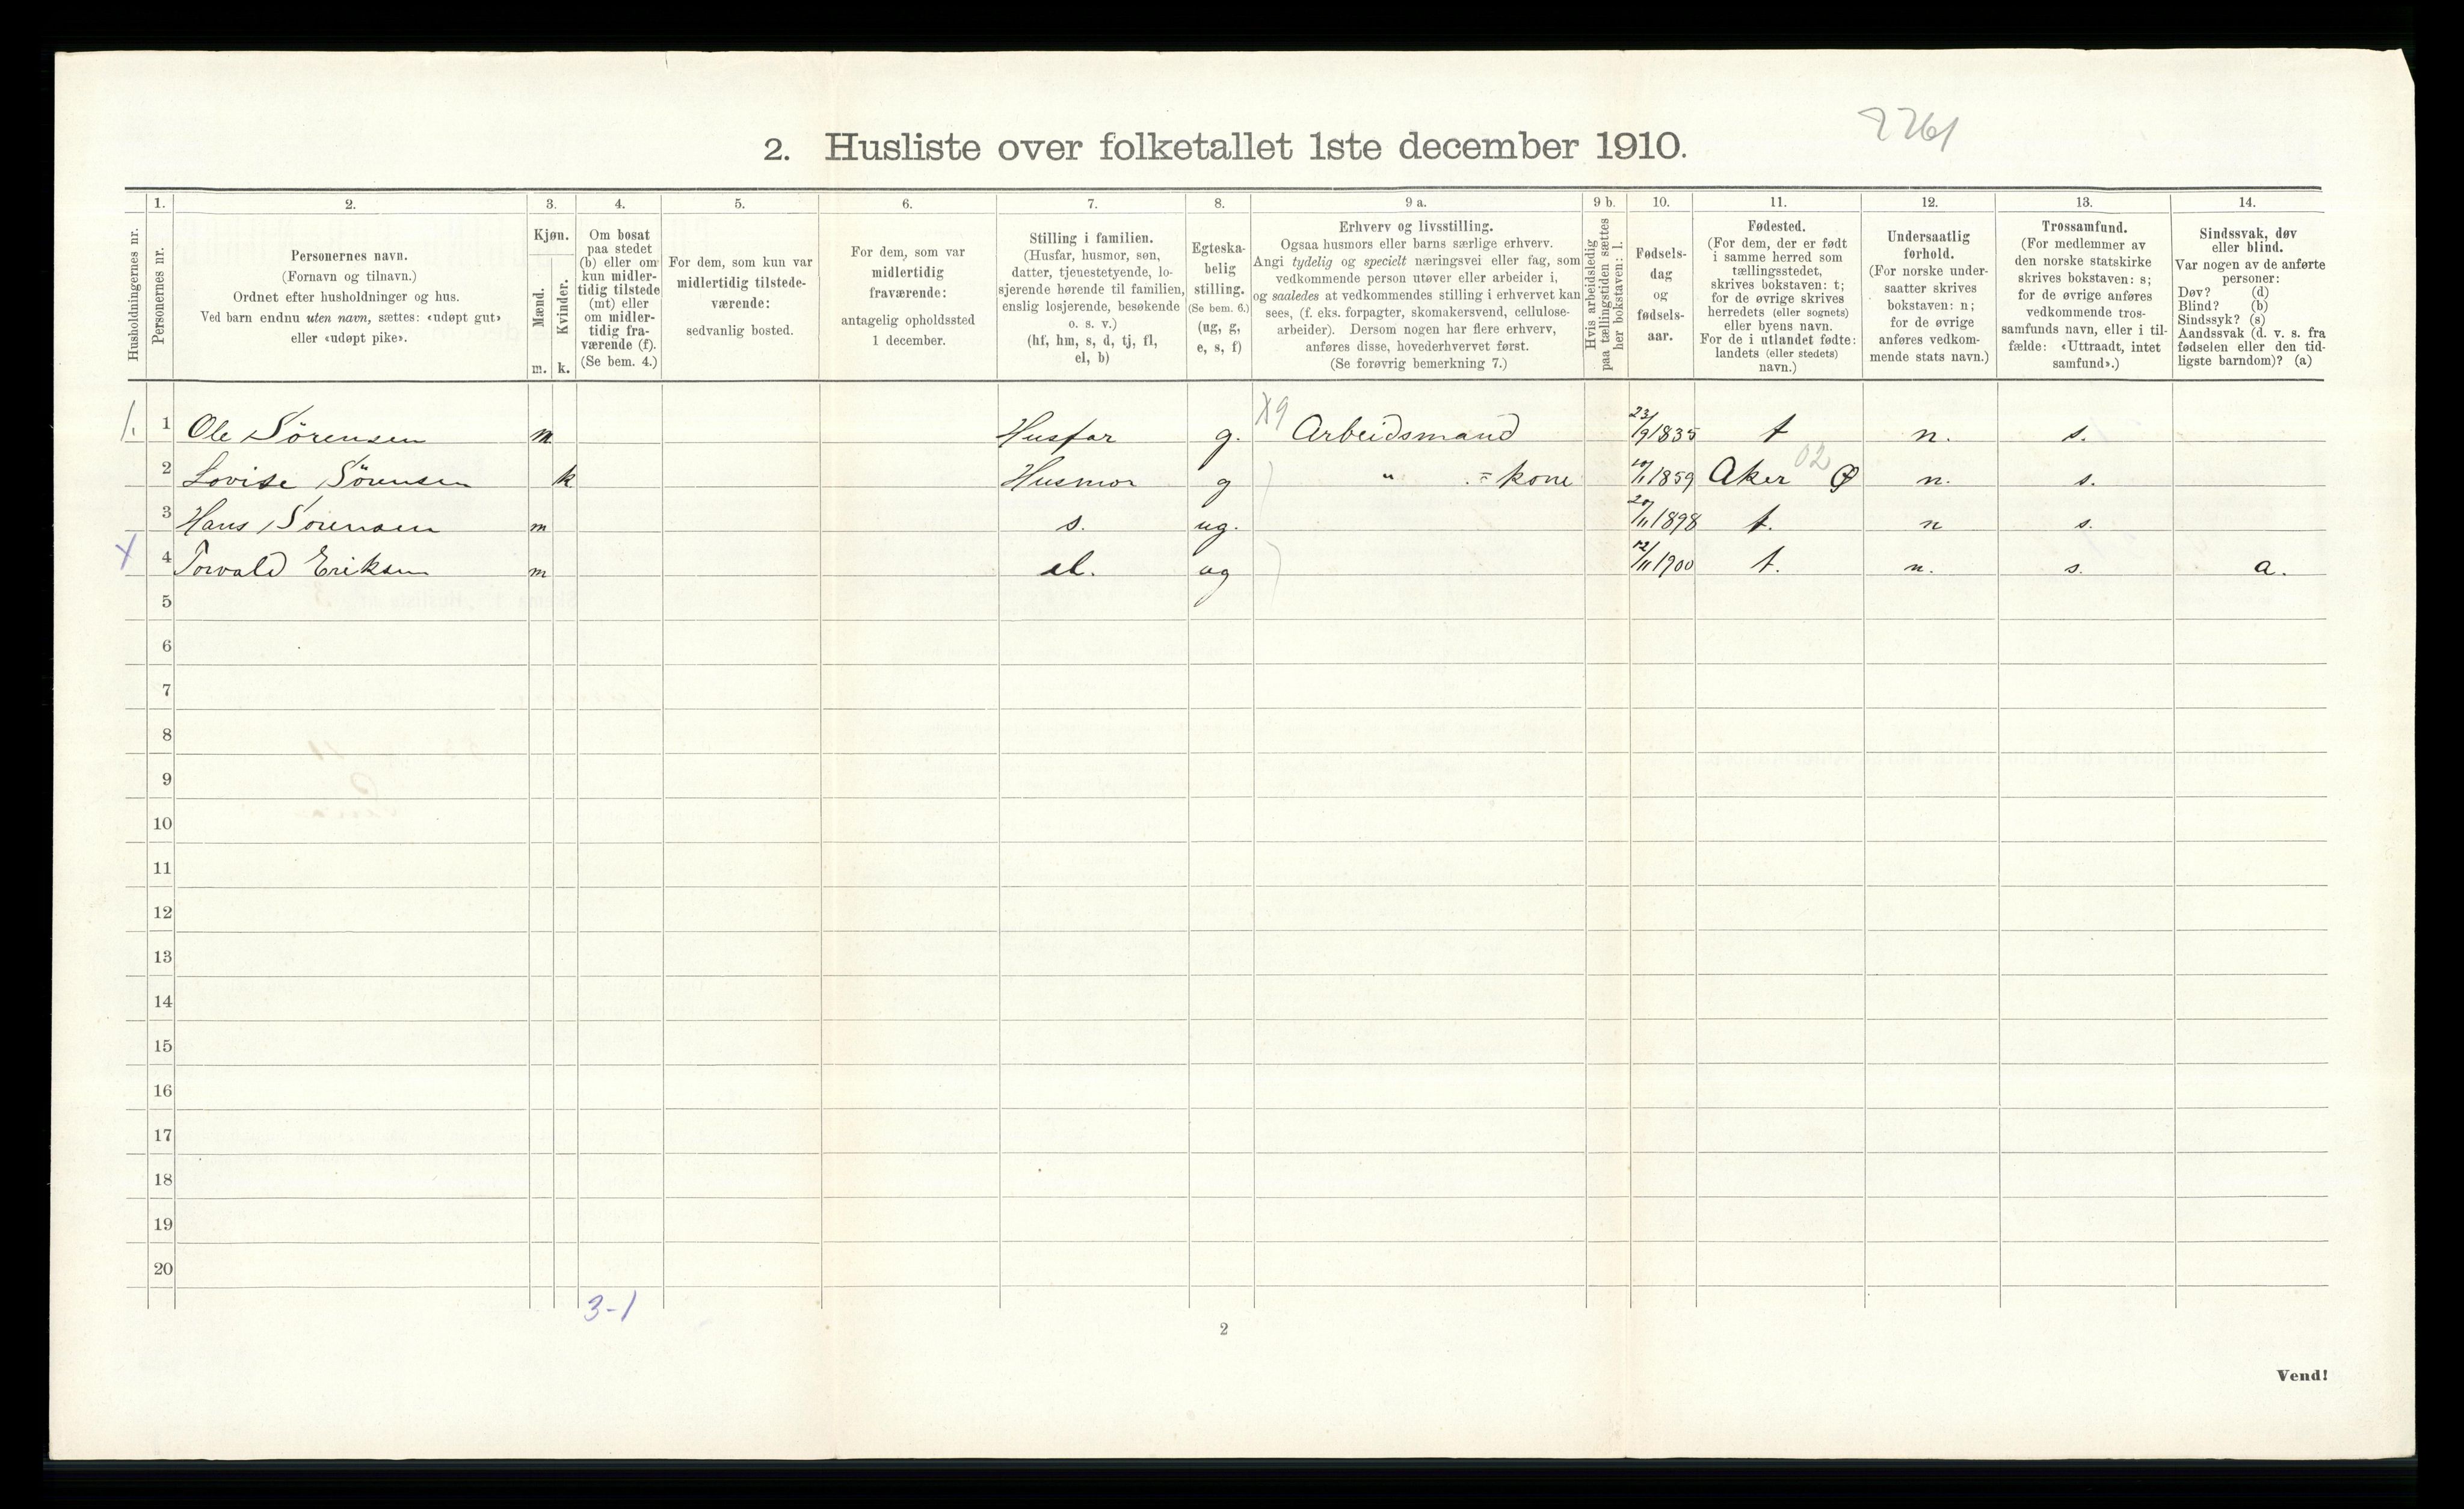 2761
2. Husliste over folketallet 1ste december 1910.
Husholdningernes nr.
1.
Personernes nr.
2.
Personernes navn.
(Fornavn og tilnavn.)
Ordnet efter husholdninger og hus.
Ved barn endnu uten navn, sættes: «udøpt gut»
eller «udøpt pike».
3.
Kjøn.
Mænd.
Kvinder.
m. k.
4.
Om bosat
paa stedet
(b) eller om
kun midler-
tidig tilstede
(mt) eller
om midler-
tidig fra-
værende (f).
(Se bem. 4.)
5.
For dem, som kun var
midlertidig tilstede-
værende:
sedvanlig bosted.
6.
For dem, som var
midlertidig
fraværende:
antagelig opholdssted
1 december.
7.
Stilling i familien.
(Husfar, husmor, søn,
datter, tjenestetyende, lo-
sjerende hørende til familien,
enslig losjerende, besøkende
o. s. v.)
(hf, hm, s, d, tj, fl,
el, b)
8.
Egteska-
belig
stilling.
(Se bem. 6.)
(ug, g,
e, s, f)
9 a.
Erhverv og livsstilling.
Ogsaa husmors eller barns særlige erhverv.
Angi tydelig og specielt næringsvei eller fag, som
vedkommende person utøver eller arbeider i,
og saaledes at vedkommendes stilling i erhvervet kan
sees, (f. eks. forpagter, skomakersvend, cellulose-
arbeider). Dersom nogen har flere erhverv,
anføres disse, hovederhvervet først.
(Se forøvrig bemerkning 7.)
9 b.
Hvis arbeidsledig
paa tællingstiden sættes
her bokstaven: l.
10.
Fødsels-
dag
og
fødsels-
aar.
11.
Fødested.
(For dem, der er født
i samme herred som
tællingsstedet,
skrives bokstaven: t;
for de øvrige skrives
herredets (eller sognets)
eller byens navn.
For de i utlandet fødte:
landets (eller stedets)
navn.)
12.
Undersaatlig
forhold.
(For norske under-
saatter skrives
bokstaven: n;
for de øvrige
anføres vedkom-
mende stats navn.)
13.
Trossamfund.
(For medlemmer av
den norske statskirke
skrives bokstaven: s;
for de øvrige anføres
vedkommende tros-
samfunds navn, eller i til-
fælde: «Uttraadt, intet
samfund».)
14.
Sindssvak, døv
eller blind.
Var nogen av de anførte
personer:
Døv? (d)
Blind? (b)
Sindssyk? (s)
Aandssvak (d. v. s. fra
fødselen eller den tid-
ligste barndom)? (a)
1. 1 Ole Sörensen m Husfar g. X9 Arbeidsmand 23/9 1835 t n. s.
2 Lovise Sörensen k Husmor g " = kone 10/1 1859 Aker 02 n. s.
3 Hans Sorensen m s. ug. 20/11 1898 t. n s.
X 4 Torvald Eriksen m el. ug 12/11 1900 t. n. s. a.
5
6
7
8
9
10
11
12
13
14
15
16
17
18
19
20
3-1
2
Vend!